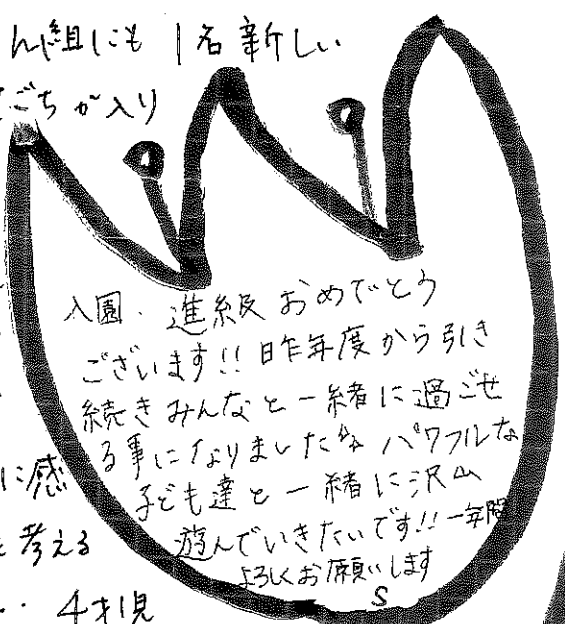 ん組にも 1名新しい
ごちが入り
入園・進級おめでとう
ございます!! 昨年度から引き
続きみんなと一緒に過ごせ
る事になりました パワフルな
子ども達と一緒に沢山
遊んでいきたいです!! 一年間
よろしくお願いします
S
に感
考える
4才児